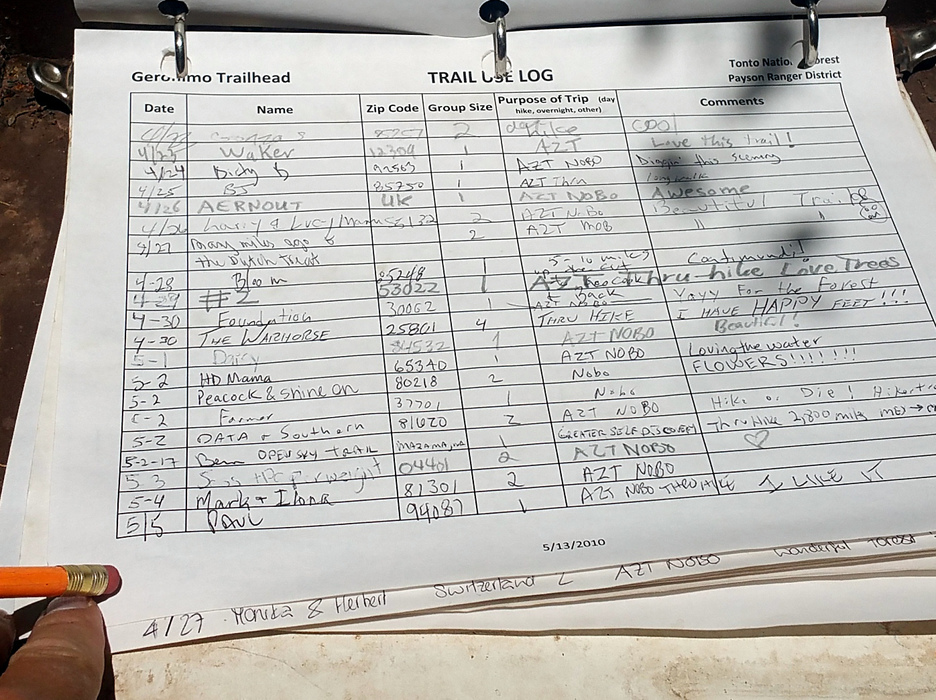 Geronimo Trailhead TRAIL USE LOG Tonto National Forest
Payson Ranger District
Date Name Zip Code Group Size Purpose of Trip (day hike, overnight, other) Comments
2 day hike cool
4/23 Waker 12304 1 AZT Love this trail!
4/24 Dirty D 92563 1 AZT NOBO this
4/25 BJ 85750 1 AZT Thru
4/26 AERNOUT UK 1 AZT NOBO Awesome
4/26 Larry & 2 AZT NoBo Beautiful Trail
4/27 many miles ago & 2 AZT NOB " "
the Dutch Treat
4-28 Bloom 85248 1 5-10 miles
4-29 #2 53022 1 thru-hike Love Trees
4-30 Foundation 30062 1 AZT NOBO Yayy For the Forest
4-30 THE WARHORSE 25801 4 THRU HIKE I HAVE HAPPY FEET!!!
5-1 Daisy 84532 1 AZT NOBO Beautiful!
5-2 HD Mama 65340 1 AZT NOBO Loving the water
5-2 Peacock & shine on 80218 2 Nobo FLOWERS!!!!!!!
5-2 Farmer 37701 1 Nobo Hike or Die!
5-2 DATA & Southern 81620 2 AZT NOBO Thru Hike 2,800 miles
5-2-17 OPEN SKY TRAIL MAZAMA, WA 1 GREATER SELF DISCOVERY ♡
5-3 04401 2 AZT NOBO
5-4 Mark + Ilona 81301 2 AZT NOBO
5/5 Paul 94087 1 AZT NOBO THRU HIKE I LIKE IT
5/13/2010
4/27 Monika & Herbert Switzerland 2 AZT NOBO Wonderful